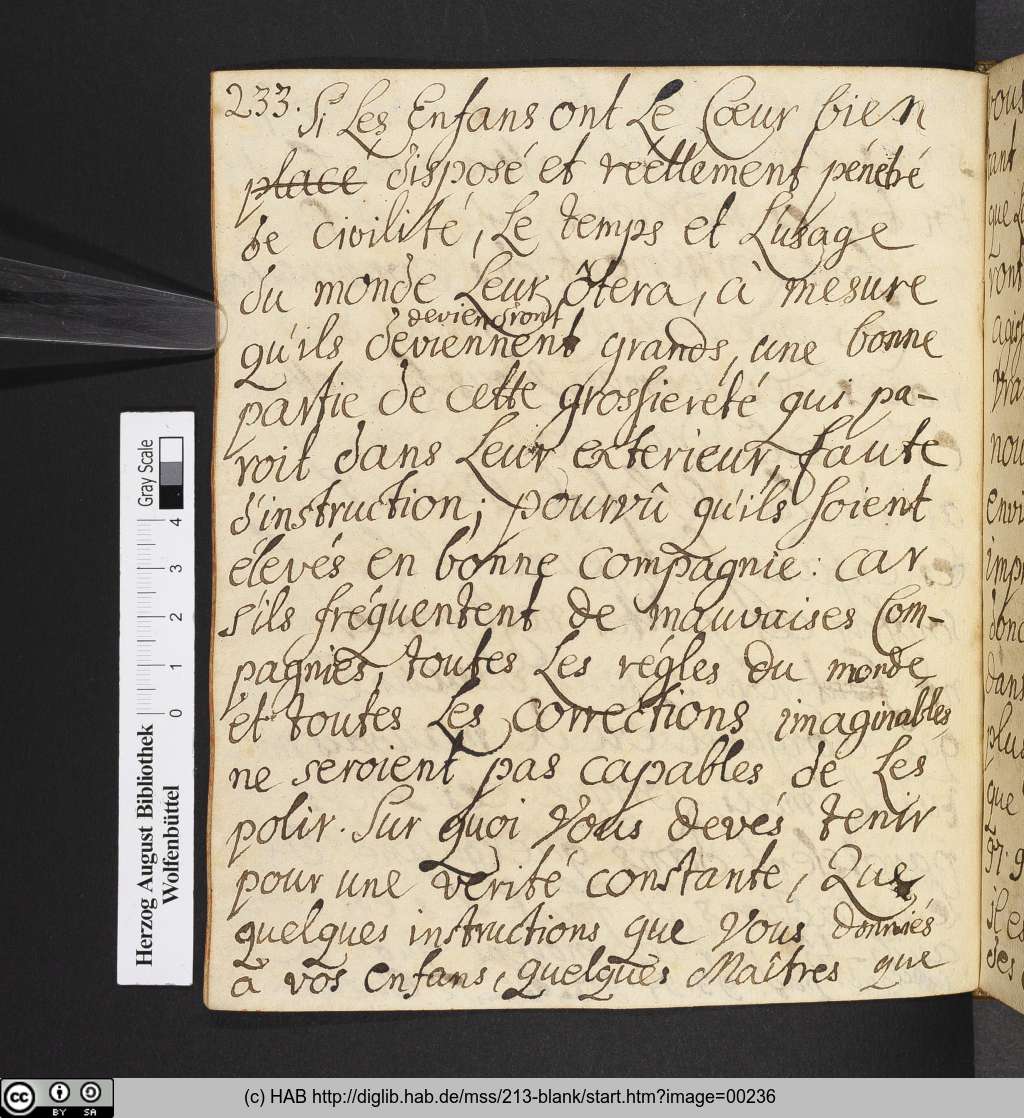 233. Si Les Enfans ont Le Cœur bien
placé disposé et réellement pénétré
de civilité, Le temps et L'usage
du monde Leur ôtera, à mesure
deviendront
qu'ils deviennent grands, une bonne
partie de cette grossiereté qui pa-
roit dans Leur exterieur, faute
d'instruction; pourvû qu'ils soient
élevés en bonne compagnie: car
s'ils fréquentent de mauvaises Com-
pagnies, toutes Les régles du monde
et toutes Les corrections imaginables
ne seroient pas capables de Les
polir. Sur quoi Vous devés tenir
pour une verité constante, Que
quelques instructions que Vous donniés
à vos enfans, quelques Maîtres que
vous
nant
que
nou
dans
plus
que
Herzog August Bibliothek
Wolfenbüttel
0 1 2 3 4
Gray Scale
cc BY SA
(c) HAB http://diglib.hab.de/mss/213-blank/start.htm?image=00236